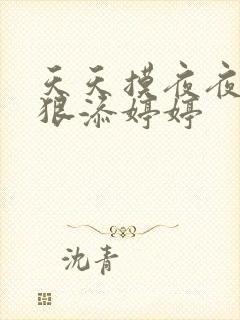 天天摸夜夜
狠添婷婷
沈青